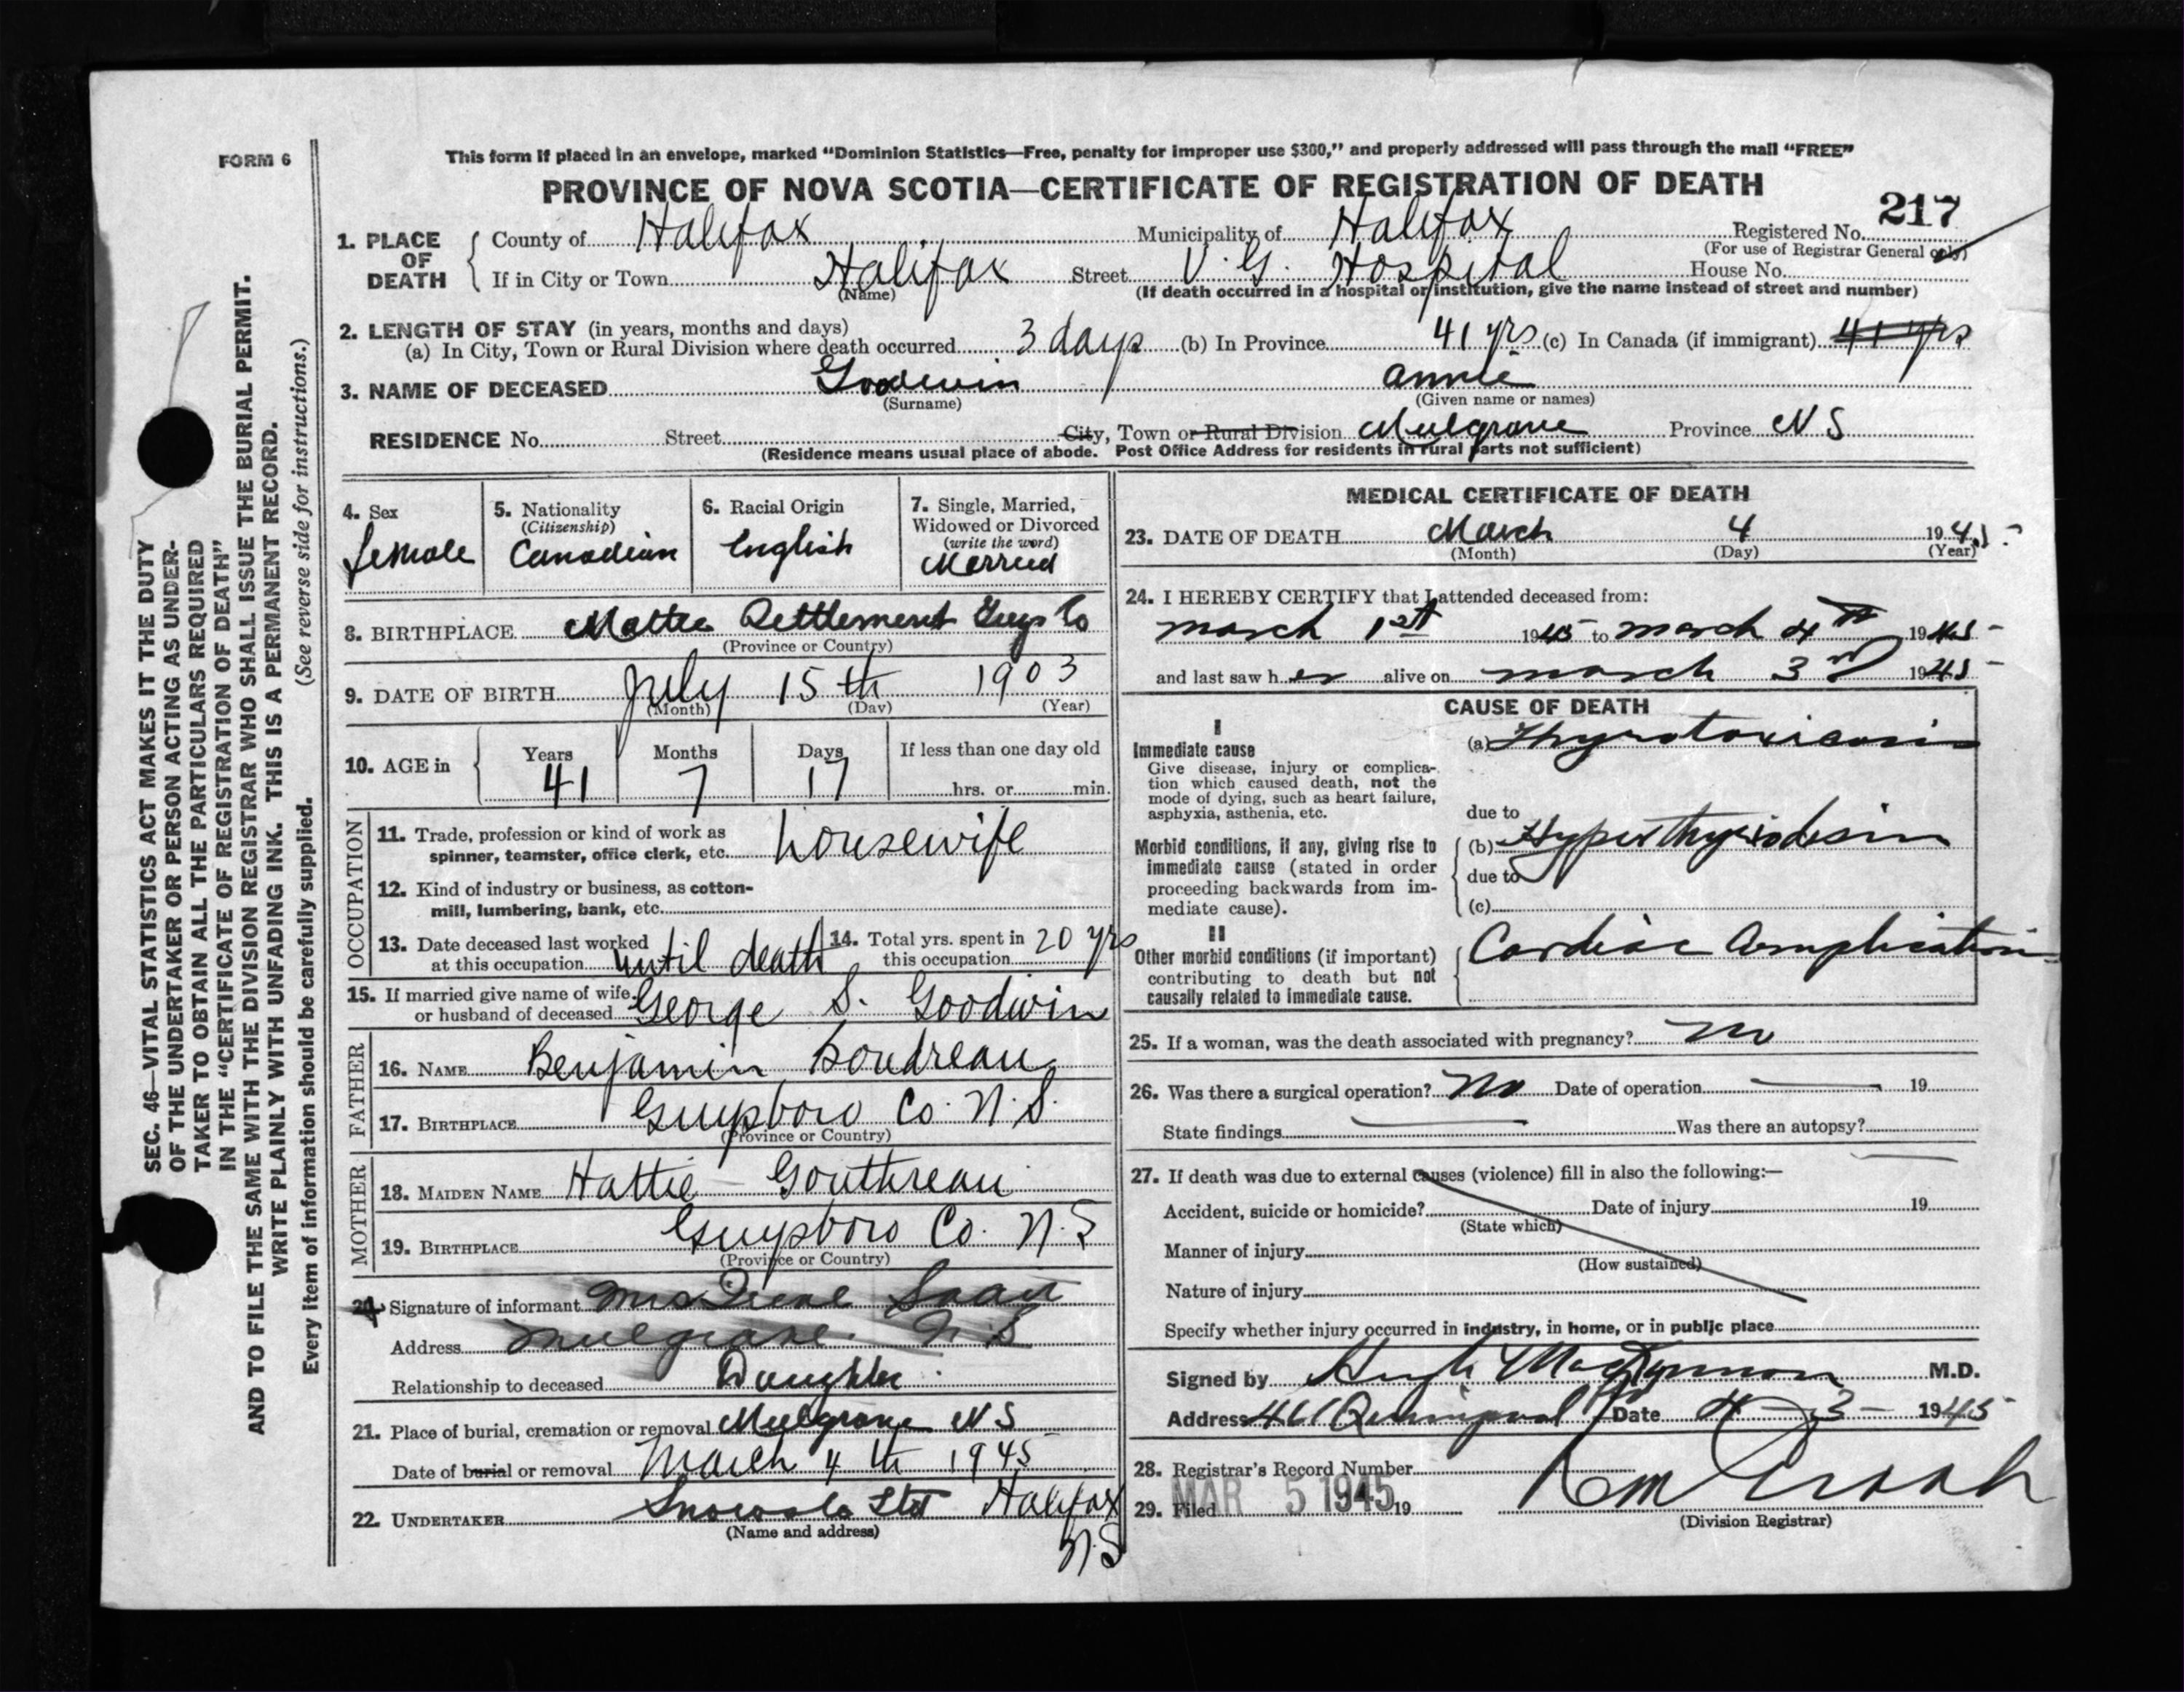 FORM 6
This form if placed in an envelope, marked "Dominion Statistics—Free, penalty for improper use $300," and properly addressed will pass through the mail "FREE"
PROVINCE OF NOVA SCOTIA—CERTIFICATE OF REGISTRATION OF DEATH
217
1. PLACE OF DEATH
County of Halifax Municipality of Halifax Registered No.
(For use of Registrar General only)
If in City or Town Halifax Street V. G. Hospital House No.
(Name) (If death occurred in a hospital or institution, give the name instead of street and number)
2. LENGTH OF STAY (in years, months and days)
(a) In City, Town or Rural Division where death occurred 3 days (b) In Province 41 yrs (c) In Canada (if immigrant) 41 yrs
3. NAME OF DECEASED Goodwin Annie
(Surname) (Given name or names)
RESIDENCE No. Street City, Town or Rural Division Mulgrave Province N S
(Residence means usual place of abode. Post Office Address for residents in rural parts not sufficient)
4. Sex
female
5. Nationality
(Citizenship)
Canadian
6. Racial Origin
English
7. Single, Married,
Widowed or Divorced
(write the word)
Married
8. BIRTHPLACE Mattie Settlement Guys Co
(Province or Country)
9. DATE OF BIRTH July 15th 1903
(Month) (Day) (Year)
10. AGE in
Years Months Days If less than one day old
41 7 17 hrs. or min.
OCCUPATION
11. Trade, profession or kind of work as
spinner, teamster, office clerk, etc. housewife
12. Kind of industry or business, as cotton-
mill, lumbering, bank, etc.
13. Date deceased last worked
at this occupation until death
14. Total yrs. spent in
this occupation 20 yrs
15. If married give name of wife
or husband of deceased George S. Goodwin
FATHER
16. NAME Benjamin Boudreau
17. BIRTHPLACE Guysboro Co. N.S.
(Province or Country)
MOTHER
18. MAIDEN NAME Hattie Gouthreau
19. BIRTHPLACE Guysboro Co. N.S
(Province or Country)
20. Signature of informant Mrs Irene
Address Mulgrave. N.S
Relationship to deceased Daughter.
21. Place of burial, cremation or removal Mulgrave N S
Date of burial or removal March 4th 1945
22. UNDERTAKER Snow & Co Ltd Halifax
(Name and address)
N.S
MEDICAL CERTIFICATE OF DEATH
23. DATE OF DEATH March 4 1945
(Month) (Day) (Year)
24. I HEREBY CERTIFY that I attended deceased from:
March 1st 1945 to March 4th 1945
and last saw her alive on March 3rd 1945
CAUSE OF DEATH
I
Immediate cause
Give disease, injury or complica-
tion which caused death, not the
mode of dying, such as heart failure,
asphyxia, asthenia, etc.
(a) Thyrotoxicosis
due to
Morbid conditions, if any, giving rise to
immediate cause (stated in order
proceeding backwards from im-
mediate cause).
(b) Hyperthyroidism
due to
(c)
II
Other morbid conditions (if important)
contributing to death but not
causally related to immediate cause.
Cardiac Complications
25. If a woman, was the death associated with pregnancy? No
26. Was there a surgical operation? No Date of operation 19
State findings Was there an autopsy?
27. If death was due to external causes (violence) fill in also the following:—
Accident, suicide or homicide? Date of injury 19
(State which)
Manner of injury
(How sustained)
Nature of injury
Specify whether injury occurred in industry, in home, or in public place
Signed by Hugh MacKinnon M.D.
Address Date 4-3-1945
28. Registrar's Record Number
29. Filed MAR 5 1945 19
(Division Registrar)
SEC. 46—VITAL STATISTICS ACT MAKES IT THE DUTY
OF THE UNDERTAKER OR PERSON ACTING AS UNDER-
TAKER TO OBTAIN ALL THE PARTICULARS REQUIRED
IN THE "CERTIFICATE OF REGISTRATION OF DEATH"
AND TO FILE THE SAME WITH THE DIVISION REGISTRAR WHO SHALL ISSUE THE BURIAL PERMIT.
WRITE PLAINLY WITH UNFADING INK. THIS IS A PERMANENT RECORD.
Every item of information should be carefully supplied. (See reverse side for instructions.)